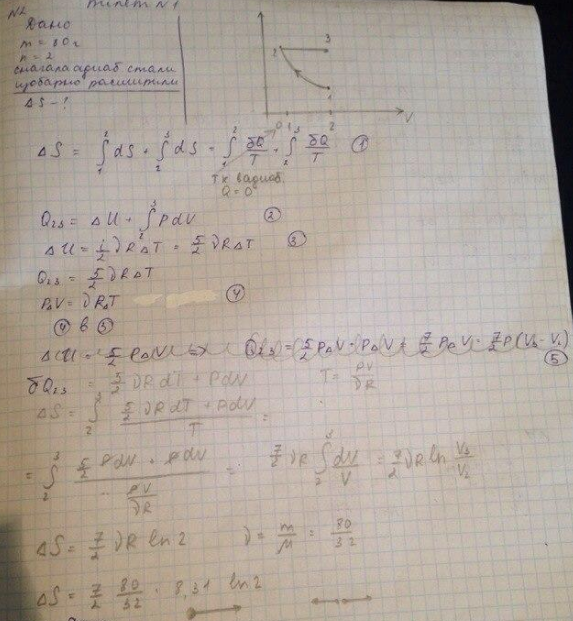 N2 билет N1
Дано
m = 80г
n = 2
сначала адиаб. стали
изобарно расширили
ΔS - ?
2 3
1
0 1 2 V
ΔS = ∫₁² dS + ∫₂³ dS = ∫₁² δQ/T + ∫₂³ δQ/T ①
Т.к в адиаб.
Q = 0
Q₂₃ = ΔU + ∫₂³ PdV ②
ΔU = i/2 νRΔT = 5/2 νRΔT ③
Q₂₃ = 5/2 νRΔT
PΔV = νRΔT ④
④ в ③
ΔU = 5/2 PΔV => Q₂₃ = 5/2 PΔV + PΔV = 7/2 PΔV = 7/2 P(V₃ - V₂) ⑤
δQ₂₃ = 5/2 νRdT + PdV T = PV/νR
ΔS = ∫₂³ (5/2 νRdT + PdV)/T =
= ∫₂³ (5/2 PdV + PdV)/(PV/νR) = 7/2 νR ∫₂³ dV/V = 7/2 νR ln V₃/V₂
ΔS = 7/2 νR ln 2 ν = m/M = 80/32
ΔS = 7/2 80/32 · 8,31 ln 2